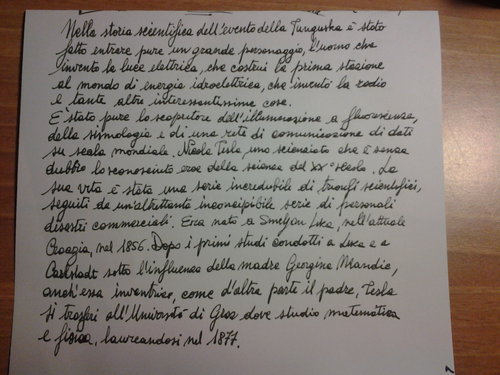 Nella storia scientifica dell'evento della Tunguska è stato
fatto entrare pure un grande personaggio, l'uomo che
inventò la luce elettrica, che costruì la prima stazione
al mondo di energia idroelettrica, che inventò la radio
e tante altre interessantissime cose.
E' stato pure lo scopritore dell'illuminazione a fluorescenza,
della sismologia e di una rete di comunicazione di dati
su scala mondiale. Nicola Tesla, uno scienziato che è senza
dubbio lo sconosciuto eroe della scienza del XX° secolo. La
sua vita è stata una serie incredibile di trionfi scientifici,
seguiti da un'altrettanto inconcepibile serie di personali
disastri commerciali. Era nato a Smiljan Lika, nell'attuale
Croazia, nel 1856. Dopo i primi studi condotti a Lika e a
Carlstadt sotto l'influenza della madre Georgina Mandic,
anch'essa inventrice, come d'altra parte il padre, Tesla
si trasferì all'Università di Graz dove studiò matematica
e fisica, laureandosi nel 1877.